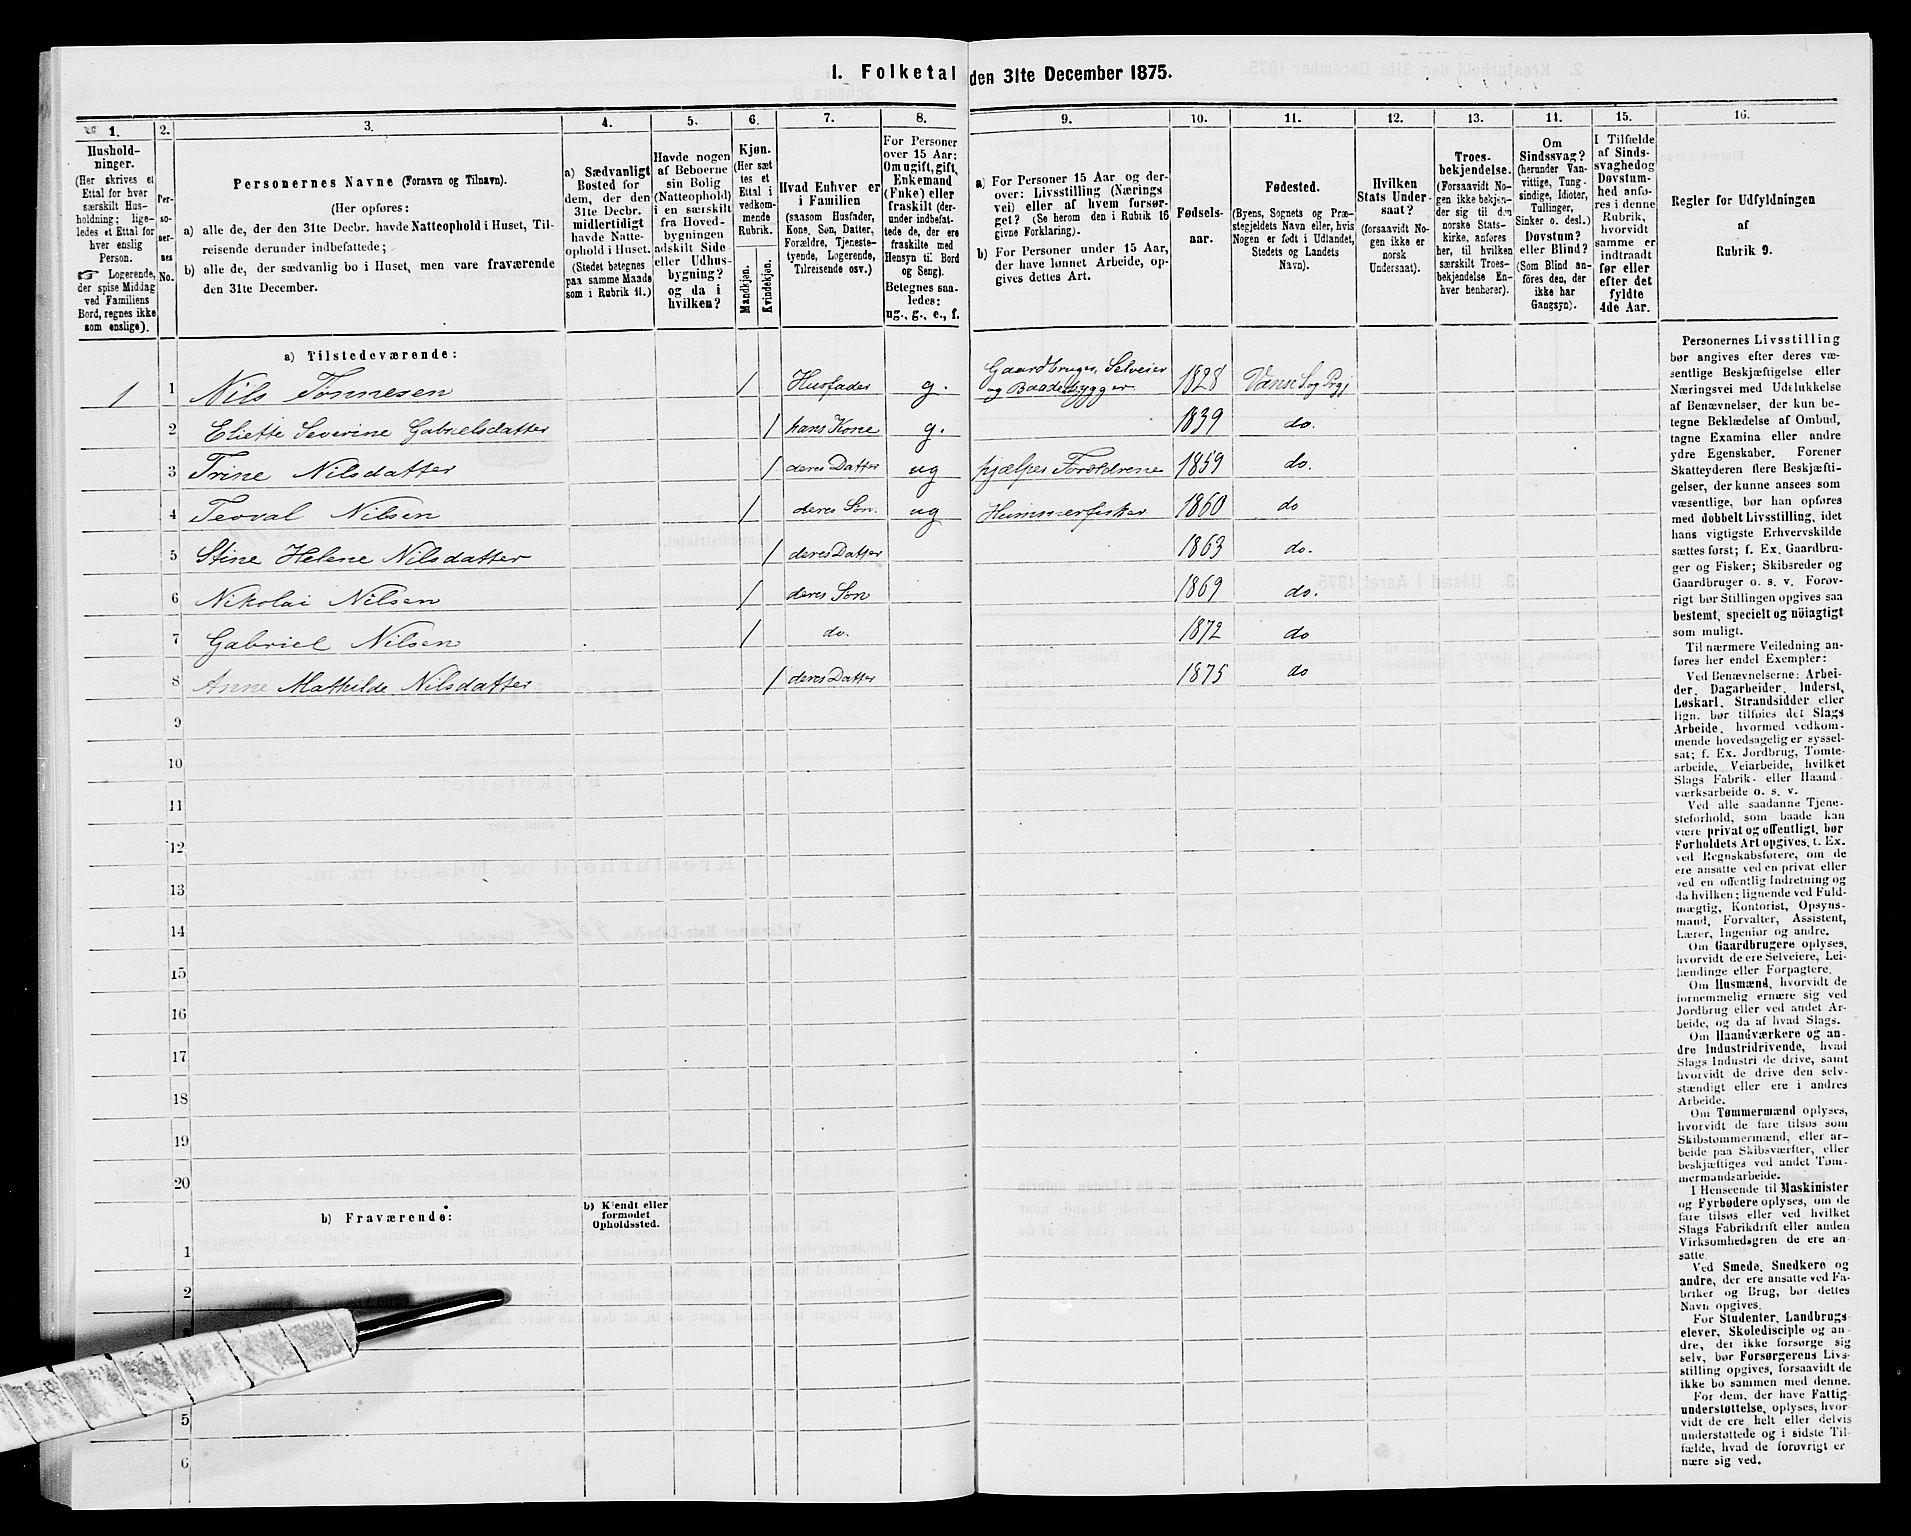 1. Folketal den 31te December 1875.
1.
Hushold-
ninger.
(Her skrives et
Ettal for hver
særskilt Hus-
holdning; lige-
ledes et Ettal for
hver enslig
Person.
☞ Logerende,
der spise Middag
ved Familiens
Bord, regnes ikke
som enslige).
2.
Per-
so-
ner-
nes
No.
3.
Personernes Navne (Fornavn og Tilnavn).
(Her opføres:
a) alle de, der den 31te Decbr. havde Natteophold i Huset, Til-
reisende derunder indbefattede;
b) alle de, der sædvanlig bo i Huset, men vare fraværende
den 31te December.
4.
a) Sædvanligt
Bosted for
dem, der den
31te Decbr.
midlertidigt
havde Natte-
ophold i Huset.
(Stedet betegnes
paa samme Maade
som i Rubrik 11.)
5.
Havde nogen
af Beboerne
sin Bolig
(Natteophold)
i en særskilt
fra Hoved-
bygningen
adskilt Side
eller Udhus-
bygning?
og da i
hvilken?
6.
Kjøn.
(Her sæt
tes et
Ettal i
vedkom-
mende
Rubrik.
Mandkjøn.
Kvindekjøn.
7.
Hvad Enhver er
i Familien
(saasom Husfader,
Kone, Søn, Datter,
Forældre, Tjeneste-
tyende, Logerende,
Tilreisende osv.)
8.
For Personer
over 15 Aar:
Om ugift, gift,
Enkemand
(Enke) eller
fraskilt (der-
under indbefat-
tede de, der ere
fraskilte med
Hensyn til Bord
og Seng).
Betegnes saa-
ledes:
ug., g., e., f.
9.
a) For Personer 15 Aar og der-
over: Livsstilling (Nærings
vei) eller af hvem forsør-
get? (Se herom den i Rubrik 16
givne Forklaring).
b) For Personer under 15 Aar,
der have lønnet Arbeide, op-
gives dettes Art.
10.
Fødsels-
aar.
11.
Fødested.
(Byens, Sognets og Præ-
stegjeldets Navn eller, hvis
Nogen er født i Udlandet,
Stedets og Landets
Navn).
12.
Hvilken
Stats Under-
saat?
(forsaavidt No-
gen ikke er
norsk
Undersaat).
13.
Troes-
bekjendelse.
(Forsaavidt No-
gen ikke bekjen-
der sig til den
norske Stats-
kirke, anføres
her, til hvilken
særskilt Troes-
bekjendelse En-
hver henhører).
14.
Om
Sindssvag?
(herunder Van-
vittige, Tung-
sindige, Idioter,
Tullinger,
Sinker o. desl.)
Døvstum?
eller Blind?
(Som Blind an-
føres den, der
ikke har
Gangsyn).
15.
I Tilfælde
af Sinds-
svaghed og
Døvstum-
hed anfø-
res i denne
Rubrik,
hvorvidt
samme er
indtraadt
før eller
efter det
fyldte
4de Aar.
16.
Regler for Udfyldningen
af
Rubrik 9.
a) Tilstedeværende:
1 1 Nils Tønnesen 1 Husfader g. Gaardbruger, Selveier
og Baadebygger 1828 Vanse S og Prgj
2 Eliette Severine Gabrielsdatter 1 hans Kone g. 1839 do.
3 Trine Nilsdatter 1 deres Datter ug hjælper Forældrene 1859 do.
4 Teoval Nilsen 1 deres Søn. ug Hummerfisker 1860 do
5 Stine Helene Nilsdatter 1 deres Datter 1863 do.
6 Nikolai Nilsen 1 deres Søn 1869 do.
7 Gabriel Nilsen 1 do. 1872 do
8 Anne Mathilde Nilsdatter 1 deres Datter 1875 do
9
10
11
12
13
14
15
16
17
18
19
20
b) Fraværende:
b) Kjendt eller
formodet
Opholdssted.
1
2
5
6
Personernes Livsstilling
bør angives efter deres væ-
sentlige Beskjæftigelse eller
Næringsvei med Udelukkelse
af Benævnelser, der kun be-
tegne Beklædelse af Ombud,
tagne Examina eller andre
ydre Egenskaber. Forener
Skatteyderen flere Beskjæfti-
gelser, der kunne ansees som
væsentlige, bør han opføres
med dobbelt Livsstilling, idet
hans vigtigste Erhvervskilde
sættes først; f. Ex. Gaardbru-
ger og Fisker; Skibsreder og
Gaardbruger o. s. v. Forøv-
rigt bør Stillingen opgives saa
bestemt, specielt og nöiagtigt
som muligt.
Til nærmere Veiledning an-
føres her endel Exempler:
Ved Benævnelserne: Arbei-
der, Dagarbeider, Inderst,
Løskarl, Strandsidder eller
lign. bør tilføies det Slags
Arbeide, hvormed vedkom-
mende hovedsagelig er syssel-
sat; f. Ex. Jordbrug, Tomte-
arbeide, Veiarbeide, hvilket
Slags Fabrik- eller Haand-
værksarbeide o. s. v.
Ved alle saadanne Tjene-
steforhold, som baade kan
være privat og offentligt, bør
Forholdets Art opgives, f. Ex.
ved Regnskabsførere, om de
ere ansatte ved en privat eller
ved en offentlig Indretning og
da hvilken; lignende ved Fuld-
mægtig, Kontorist, Opsyns-
mand, Forvalter, Assistent,
Lærer, Ingeniør og andre.
Om Gaardbrugere oplyses,
hvorvidt de ere Selveiere, Lei-
lændinge eller Forpagtere.
Om Husmænd, hvorvidt de
fornemmelig ernære sig ved
Jordbrug eller ved andet Ar-
beide, og da af hvad Slags.
Om Haandværkere og an-
dre Industridrivende, hvad
Slags Industri de drive, samt
hvorvidt de drive den selv-
stændigt eller ere i andres
Arbeide.
Om Tømmermænd oplyses,
hvorvidt de fare tilsøs som
Skibstømmermænd, eller ar-
beide paa Skibsværfter, eller
beskjæftiges ved andet Tøm-
mermandsarbeide.
I Henseende til Maskinister
og Fyrbødere oplyses, om de
fare tilsøs eller ved hvilket
Slags Fabrikdrift eller anden
Virksomhedsgren de ere an-
satte.
Ved Smede, Snedkere og
andre, der ere ansatte ved Fa-
briker og Brug, bør dettes
Navn opgives.
For Studenter, Landbrugs-
elever, Skoledisciple og an-
dre, der ikke forsørge sig
selv, bør Forsørgerens Livs-
stilling opgives, forsaavidt de
ikke bo sammen med denne.
For dem, der have Fattig-
understøttelse, oplyses, hvor-
vidt de ere helt eller delvis
understøttede og i sidste Til-
fælde, hvad de forøvrigt er
nære sig ved.